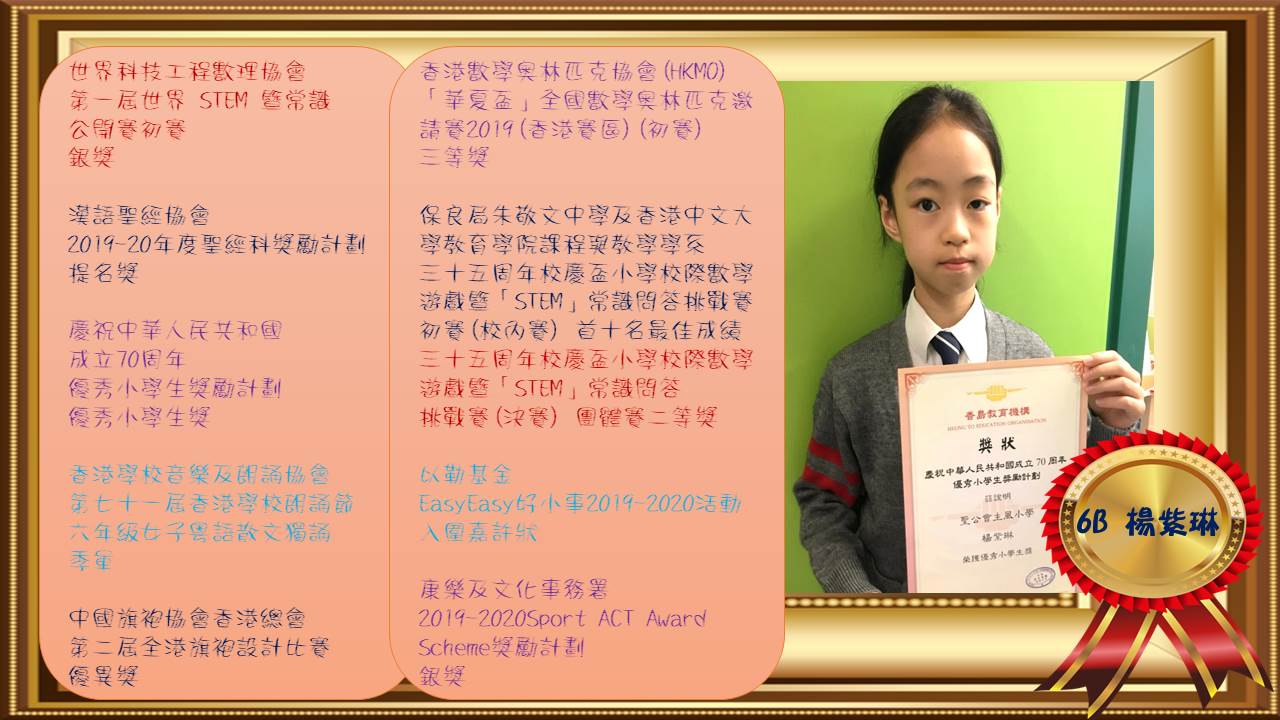 世界科技工程數理協會
第一屆世界 STEM 暨常識
公開賽初賽
銀獎
漢語聖經協會
2019-20年度聖經科獎勵計劃
提名獎
慶祝中華人民共和國
成立70周年
優秀小學生獎勵計劃
優秀小學生獎
香港學校音樂及朗誦協會
第七十一屆香港學校朗誦節
六年級女子粵語散文獨誦
季軍
中國旗袍協會香港總會
第二屆全港旗袍設計比賽
優異獎
香港數學奧林匹克協會(HKMO)
「華夏盃」全國數學奧林匹克邀
請賽2019(香港賽區)(初賽)
三等獎
保良局朱敬文中學及香港中文大
學教育學院課程與教學學系
三十五周年校慶盃小學校際數學
遊戲暨「STEM」常識問答挑戰賽
初賽(校內賽) 首十名最佳成績
三十五周年校慶盃小學校際數學
遊戲暨「STEM」常識問答
挑戰賽(決賽) 團體賽二等獎
以勤基金
EasyEasy好小事2019-2020活動
入圍嘉許狀
康樂及文化事務署
2019-2020Sport ACT Award
Scheme獎勵計劃
銀獎
香島教育機構
HEUNG TO EDUCATION ORGANISATION
獎狀
慶祝中華人民共和國成立 70 周年
優秀小學生獎勵計劃
茲證明
聖公會主風小學
楊紫琳
榮獲優秀小學生獎
6B 楊紫琳